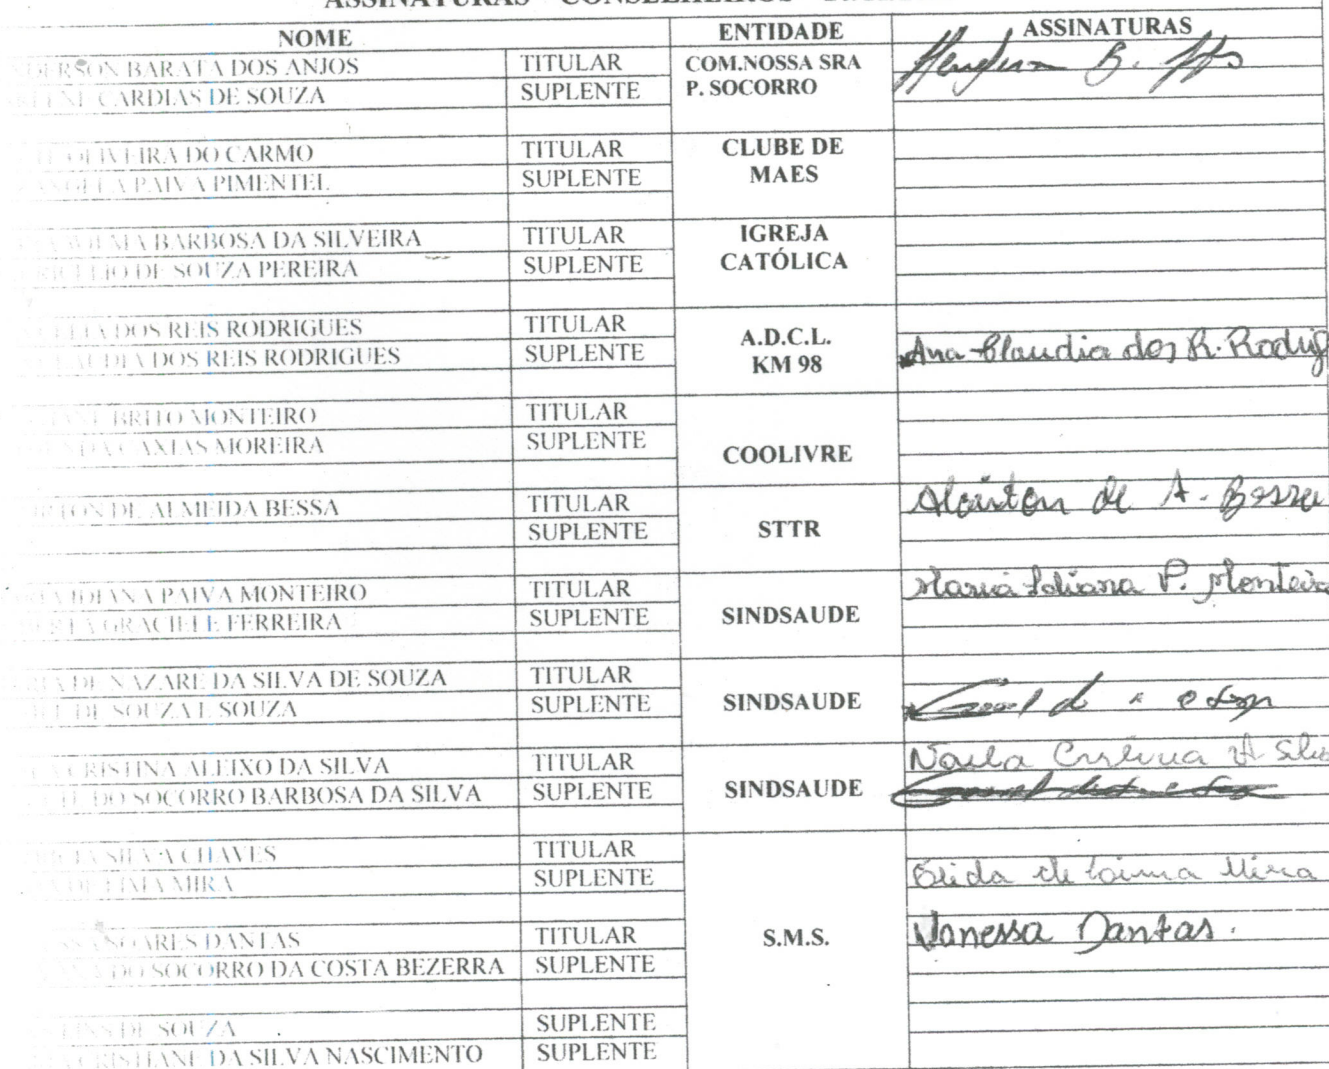 ASSINATURAS CONSELHEIROS
NOME ENTIDADE ASSINATURAS
BARATA DOS ANJOS TITULAR COM.NOSSA SRA B.
CARDIAS DE SOUZA SUPLENTE P. SOCORRO
OLIVEIRA DO CARMO TITULAR CLUBE DE
PAIVA PIMENTEL SUPLENTE MAES
BARBOSA DA SILVEIRA TITULAR IGREJA
DE SOUZA PEREIRA SUPLENTE CATÓLICA
DOS REIS RODRIGUES TITULAR A.D.C.L.
CLAUDIA DOS REIS RODRIGUES SUPLENTE KM 98 Ana Claudia dos R. Rodrig
BRITO MONTEIRO TITULAR
CAXIAS MOREIRA SUPLENTE COOLIVRE
DE ALMEIDA BESSA TITULAR STTR de A. Bessa
SUPLENTE
IDIANA PAIVA MONTEIRO TITULAR SINDSAUDE Maria Idiana P. Monteiro
GRACIELE FERREIRA SUPLENTE
DE NAZARE DA SILVA DE SOUZA TITULAR SINDSAUDE
DE SOUZA E SOUZA SUPLENTE
CRISTINA ALEIXO DA SILVA TITULAR SINDSAUDE Cristina A Silva
DO SOCORRO BARBOSA DA SILVA SUPLENTE
SILVA CHAVES TITULAR S.M.S.
DE LIMA MIRA SUPLENTE Elida de Lima Mira
SOARES DANTAS TITULAR Vanessa Dantas.
DO SOCORRO DA COSTA BEZERRA SUPLENTE
DE SOUZA SUPLENTE
CRISTIANE DA SILVA NASCIMENTO SUPLENTE